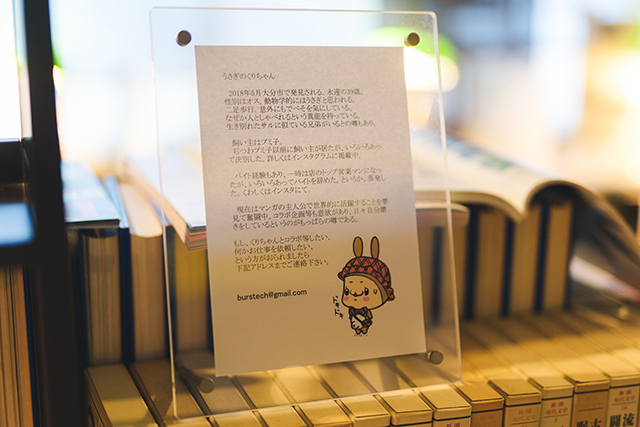 うさぎのくりちゃん
2018年5月大分市で発見される。永遠の39歳。
性別はオス。動物学的にはうさぎと思われる。
二足歩行。意外にもでべそを気にしている。
なぜか人としゃべれるという異能を持っている。
生き別れたサルに似ている兄弟がいるとの噂もあり。
飼い主はブミ子。
じつはブミ子以前に飼い主が居たが、いろいろあっ
て決別した。詳しくはインスタグラムに掲載中。
バイト経験もあり、一時は店のトップ営業マンになっ
たが、いろいろあってバイトを辞めた。というか、蒸発し
た。くわしくはインスタにて。
現在はマンガの主人公で世界的に活躍することを夢
見て奮闘中。コラボ企画等も意欲があり、日々自分磨
きをしているというのがもっぱらの噂である。
もし、くりちゃんとコラボ等したい、
何かお仕事を依頼したい、
という方がおられましたら
下記アドレスまでご連絡下さい。
burstech@gmail.com
ドキドキ